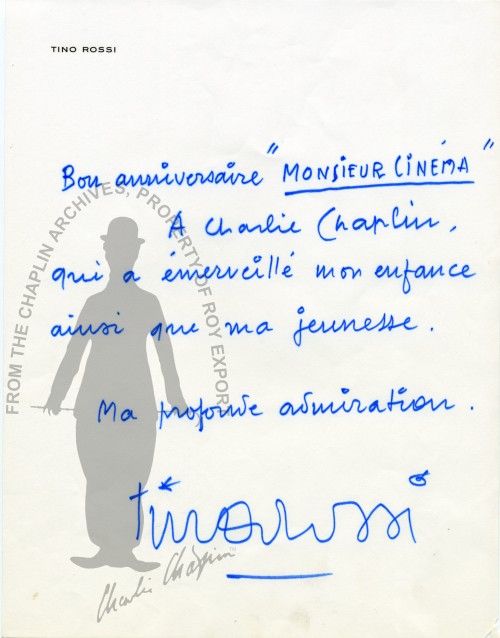 TINO ROSSI
Bon anniversaire "MONSIEUR CINÉMA"
A Charlie Chaplin,
qui a émerveillé mon enfance
ainsi que ma jeunesse.
Ma profonde admiration.
Tino Rossi
FROM THE CHAPLIN ARCHIVES, PROPERTY OF ROY EXPORT
Charlie Chaplin